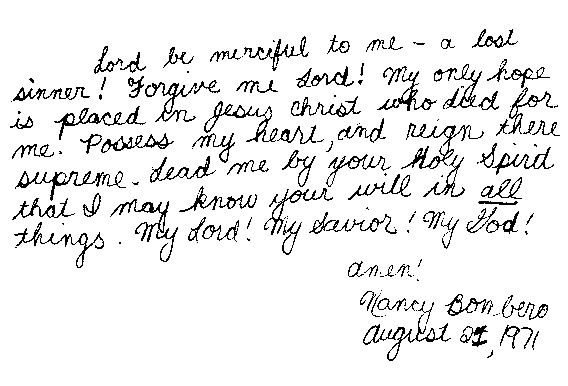 Lord be merciful to me - a lost
sinner! Forgive me Lord! My only hope
is placed in Jesus Christ who died for
me. Possess my heart, and reign there
supreme. Lead me by your Holy Spirit
that I may know your will in all
things. My Lord! My Savior! My God!
Amen!
Nancy Bombero
August 21, 1971